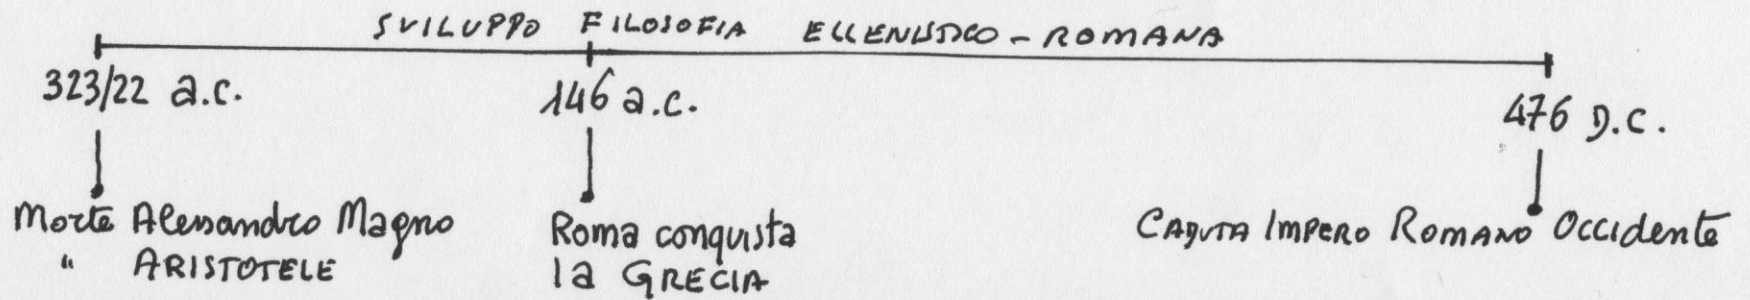 SVILUPPO FILOSOFIA ELLENISTICO - ROMANA
323/22 a.c.
146 a.c.
476 D.C.
Morte Alessandro Magno
" ARISTOTELE
Roma conquista
la GRECIA
CADUTA IMPERO ROMANO OCCIDENTE